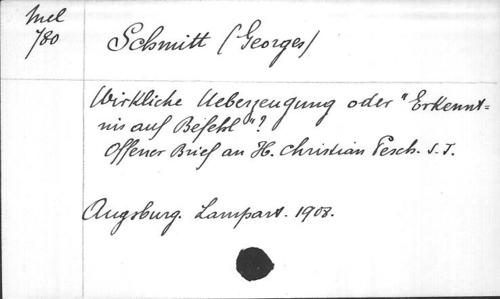 Mel
780
Schmitt (Georges)
Wirkliche Ueberzeugung oder "Erkennt=
nis auf Befehl"?
Offener Brief an H. Christian Pesch. S. J.
Augsburg. Lampart. 1908.